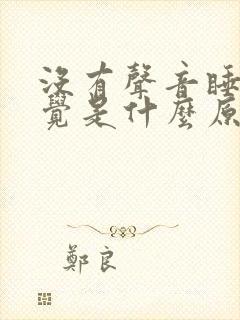 没有聲音睡
覺是什麼原
鄭良